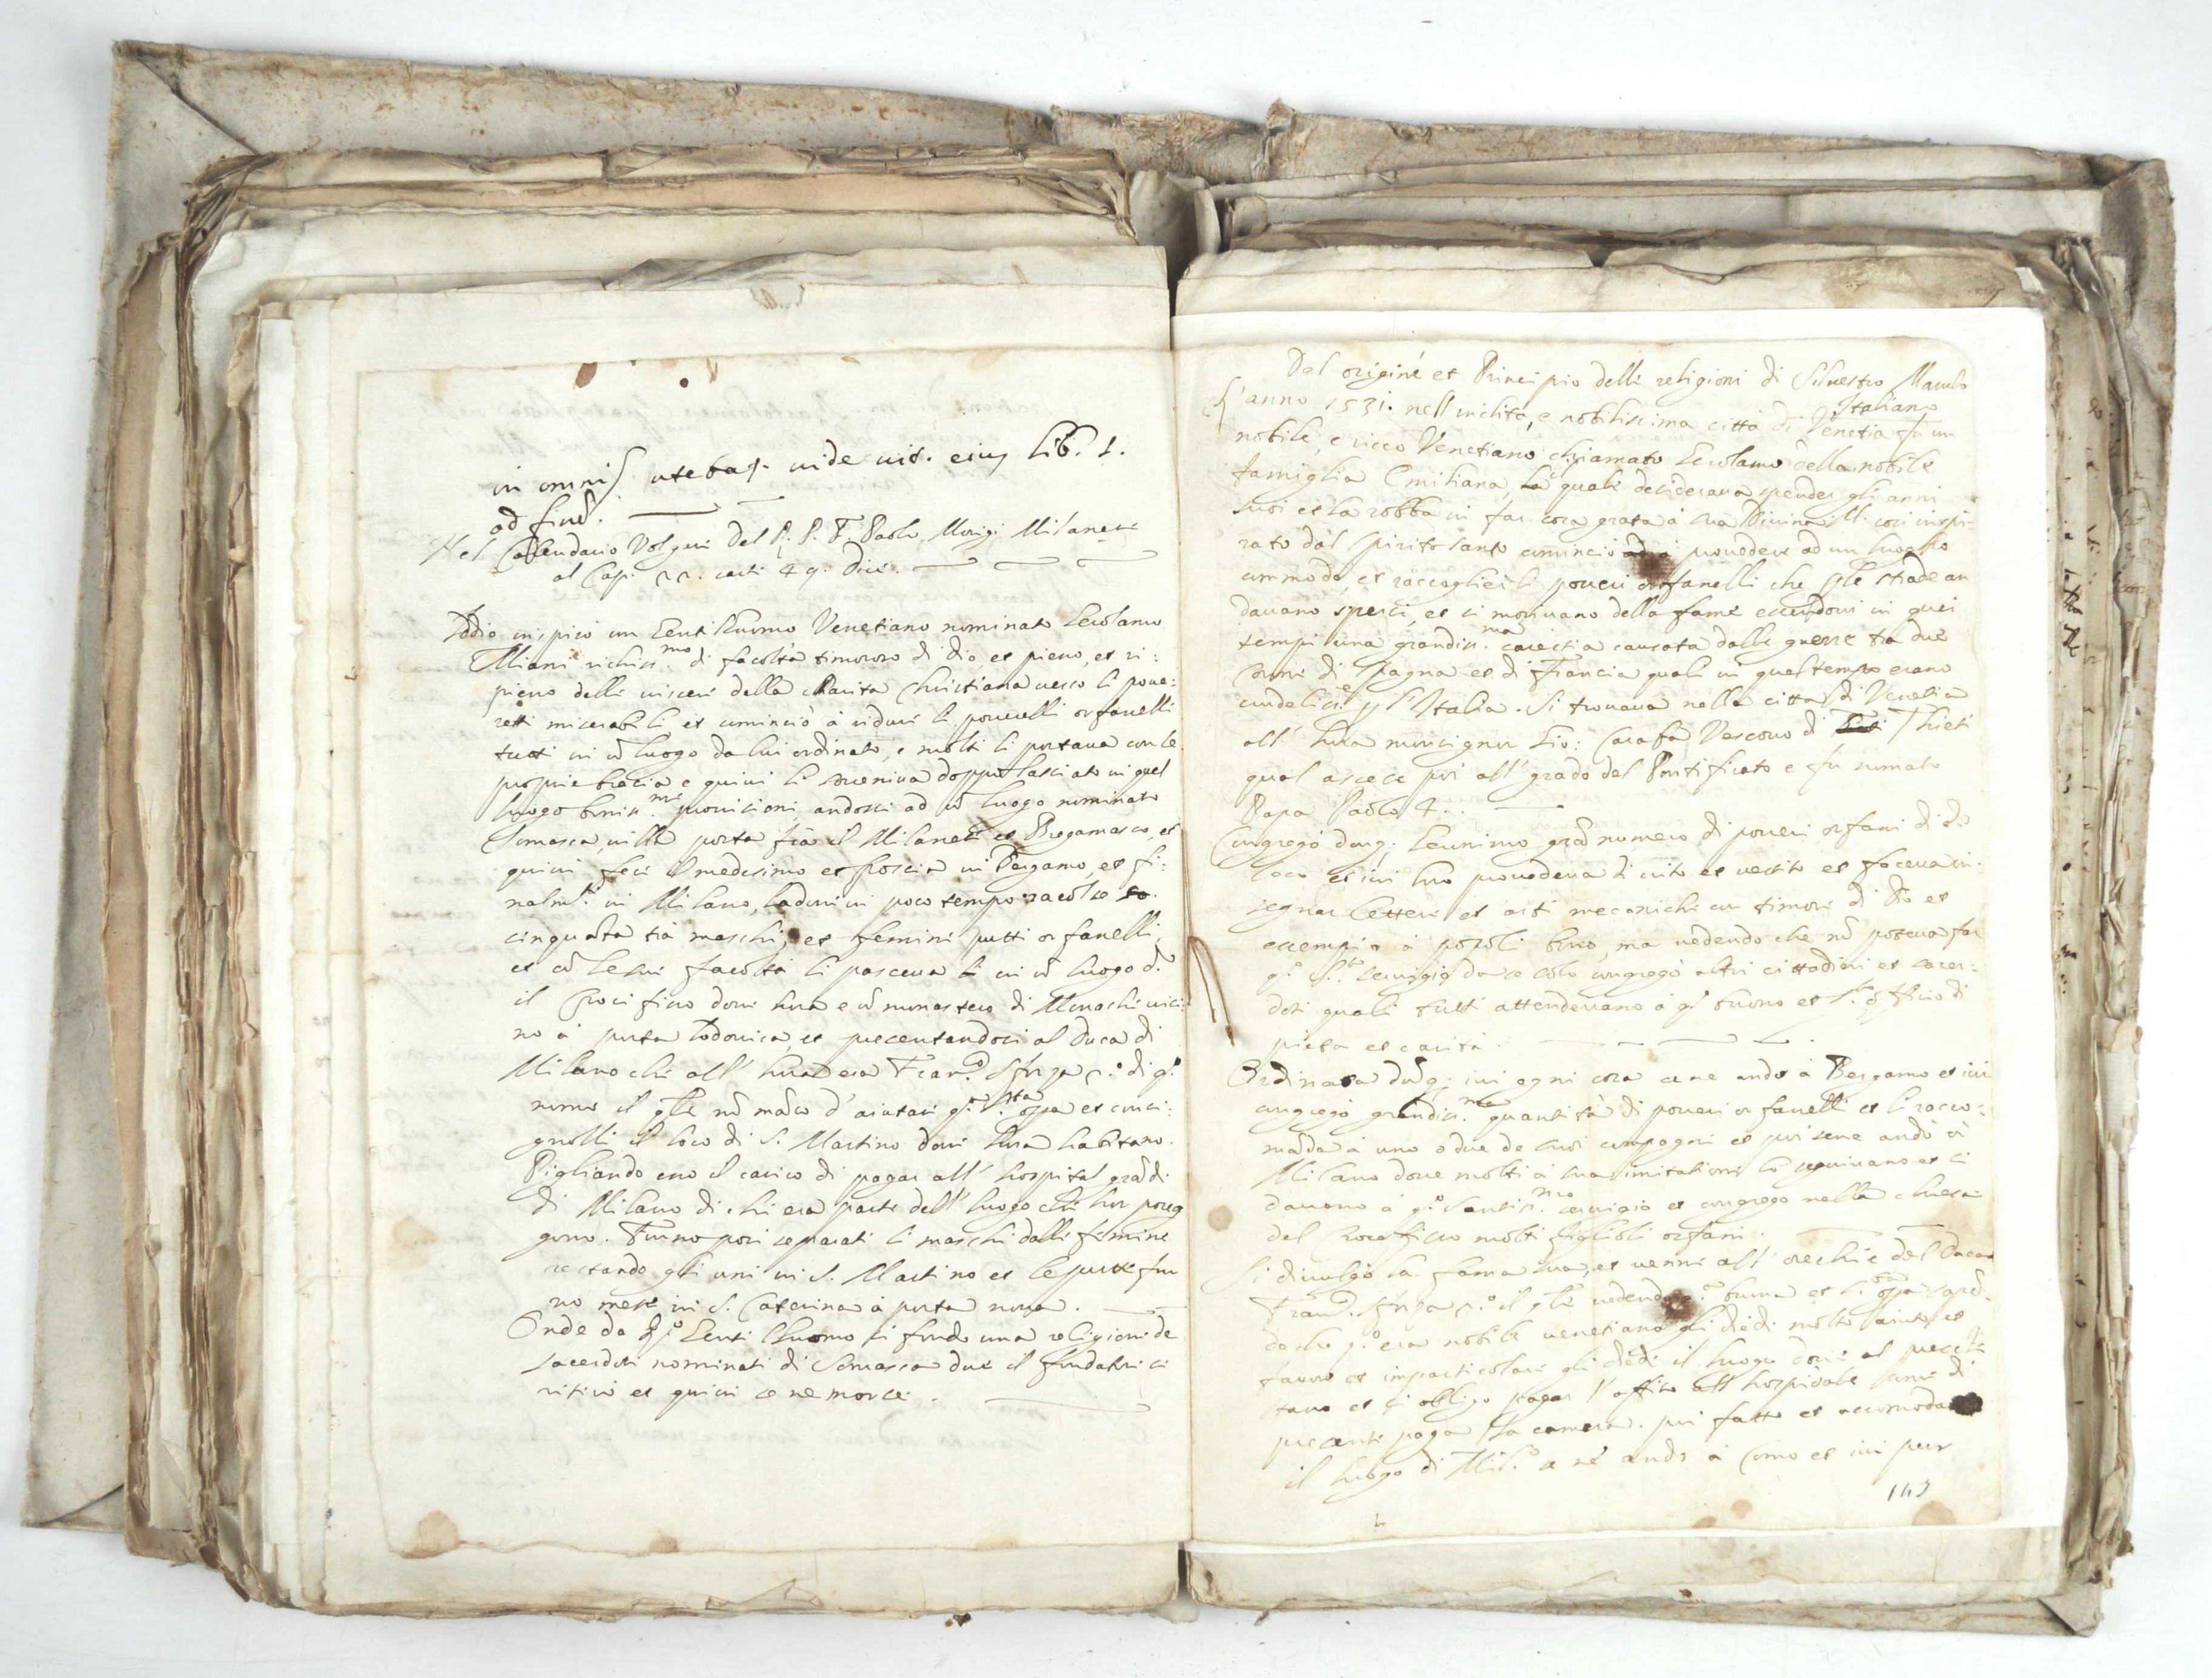 in omnib utebat. vide vit. eius Lib. 1.
ad finē.
Nel Calendario Volgare Del R. P. F. Paolo Morigi Milanese
al Cap. carte 49. dice.
Iddio inspirò un Gentilhuomo Venetiano nominato Gerolamo
Miani richiss.mo di facoltà timoroso di dio et pieno, et ri:
pieno delle viscere della charita Christiana verso li pove:
retti miserabili et cominciò à ridure li poverelli orfanelli
tutti in ū luogo da lui ordinato, e molti li portava con le
proprie bracia e quivi li doppo lasciato in quel
luogo boniss.me provisioni, andossi ad ū luogo nominato
Somasca villa posta fra il Milanese et Bregamasco, et
quivi fece il medesimo et poscia in Bergamo, et fi:
nalm.te in Milano, ladove in poco tempo racolse
cinquāta trà maschi, et femine putti orfanelli,
et cō le sue facoltà li pasceva in ū luogo d.o
il Crocifisso dove hora e ū monastero di Monache vici
no à porta Lodovica, et presentandosi al Duca di
Milano che all' hora era Fran.co Sforza 2.o di q.o
nome il qle nō mācò d'aiutare q.a s.ta opa et consi:
gnolli il loco di S. Martino dove hora habitano.
Pigliando esso il carico di pagar all' hospital grāde
di Milano di chi era parte dell' luogo che hor poseg
gono. Furno poi separati li maschi dalle femine
restando gli uni in S. Martino et le putte fu
no messe in S. Caterina à porta nova.
Onde da q.o Gentilhuomo si fondo una religione de
sacerdoti nominati di Somasca dove il fondatore si
ritirò et quivi se ne morse.
Del origine et Principio delle religioni di Silvestro Maurolo
Italiano
L'anno 1531. nell'inclita, e nobilissima città di Venetia fu un
nobile, e ricco Venetiano chiamato Gerolamo della nobile
famiglia Emiliana, quale desiderava spender gli anni
suoi et la robba in far cosa grata à sua Divina M. cosi inspi-
rato dal Spirito Santo cominciò à provedere ad un luogho
commodo, et raccogliere li poveri orfanelli che p le strade an
davano spersi, et si morivano della fame essendovi in quei
tempi una grandiss.ma carestia causata dalle guerre tra due
corone di Spagna et di Francia quali in quel tempo erano
crudeliss.e p l'Italia. Si trovava nella città di Venetia
all' hora monsignor Gio: Carafa Vescovo di Thieti
qual ascese poi all' grado del Pontificato e fu nomato
Papa Paolo 4.
Congregò donq; Geronimo grā numero di poveri orfani di d.o
loco et ivi loro provedeva di vito et vestito et faceva in-
segnar lettere et arti mecaniche con timore di Dio et
essempio à popoli bono, ma vedendo che nō poteva far
q.o S.to servigio da se solo congregò altri cittadini et sacer:
doti quali tutti attendevano à q.o buono et S.to officio di
pietà et carità.
Ordinata dōq; ivi ogni cosa se ne andò à Bergamo et ivi
congregò grandiss.ma quantità di poveri orfanelli et li racco:
māda à uno ò due de suoi compagni et poi sene andò à
Milano dove molti à sua imitatione lo seguivano et si
davano à q.o santiss.mo servigio et congregò nella chiesa
del Crocifisso molti figlioli orfani.
Si divulgò la fama sua, et venne all' orechie del Duca
Fran.co Sforza 2.o il qle vedendo q.a buona et S.ta opa
do che q.o era nobile venetiano gli diede molto aiuto, et
favore et in particolare gli diede il luogo dove al presēte
stano et si obligo pagar l'affitto all' hospidale come di
presente paga la camera. poi fatto et accomodato
il luogo di Mil.o se ne andò à Como et ivi pur
143